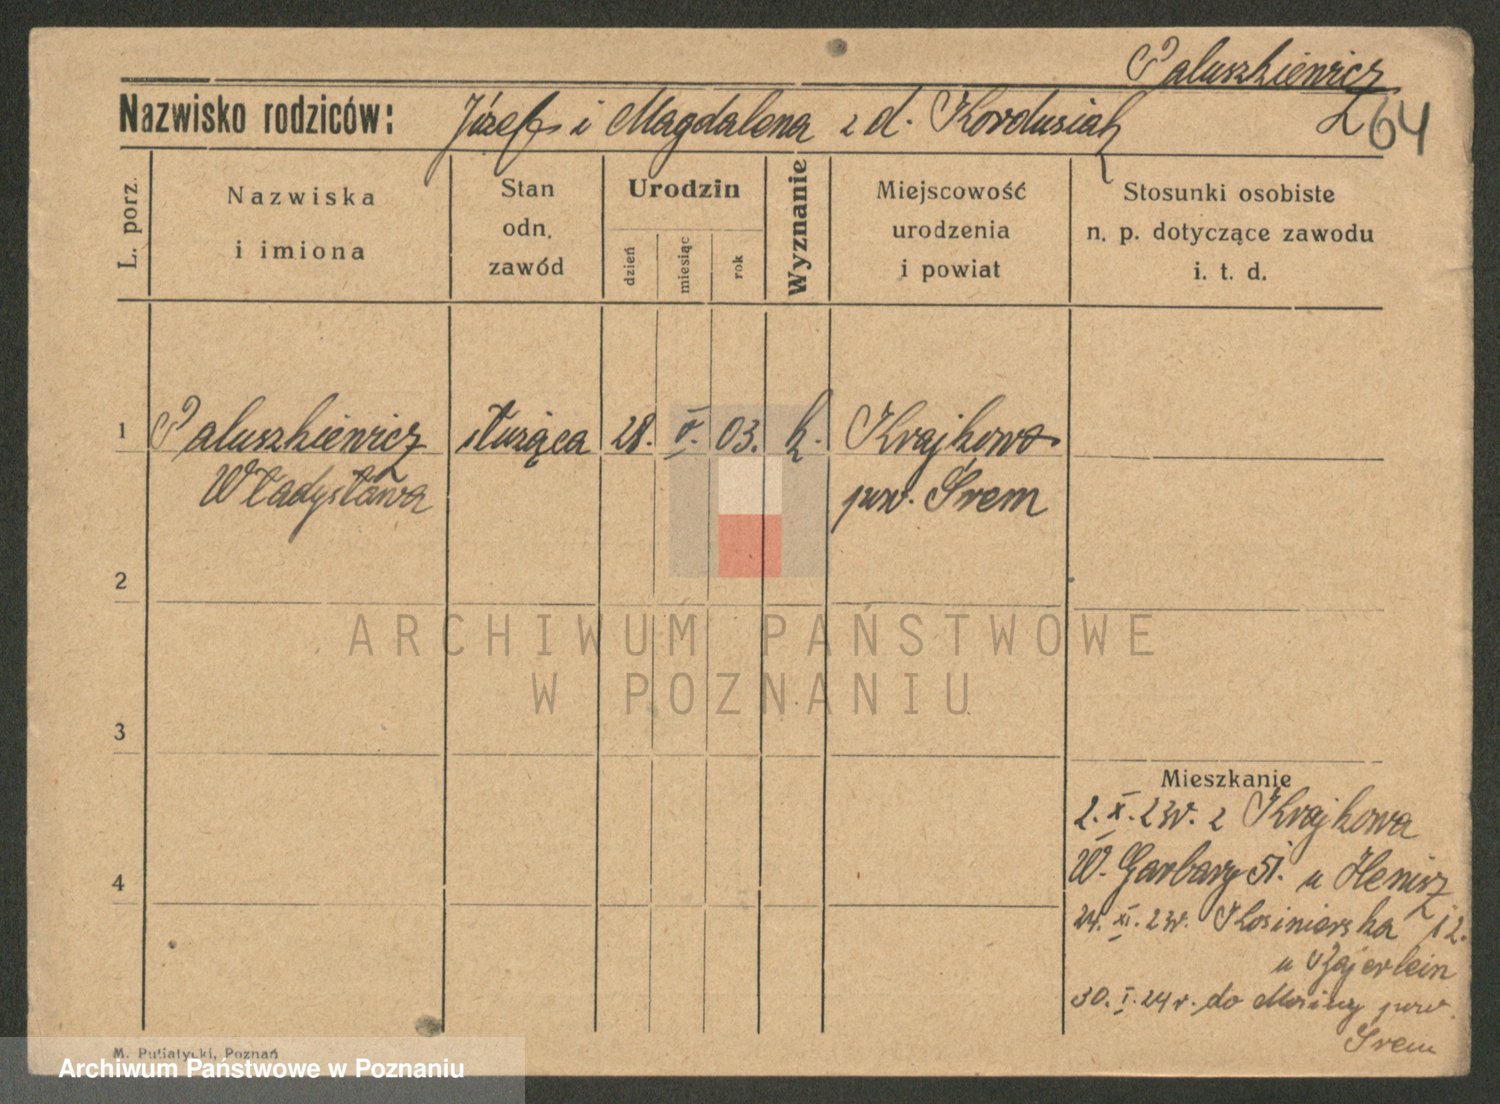 Paluszkiewicz
Nazwisko rodziców: Józef i Magdalena z d. Kordusiak
64
L. porz.
Nazwiska
i imiona
Stan
odn.
zawód
Urodzin
dzień
miesiąc
rok
Wyznanie
Miejscowość
urodzenia
i powiat
Stosunki osobiste
n. p. dotyczące zawodu
i. t. d.
1 Paluszkiewicz służąca 28. V. 03. k. Krajkowo
Władysława pow. Śrem
2
3
4
ARCHIWUM PAŃSTWOWE
W POZNANIU
Mieszkanie
2. X. 23r. z Krajkowa
W. Garbary 51. u Henisz
24. XI. 23r. Kosinierska 12.
u Bajerlein
30. I. 24r. do Mosiny pow.
Śrem
M. Putiatycki, Poznań
Archiwum Państwowe w Poznaniu